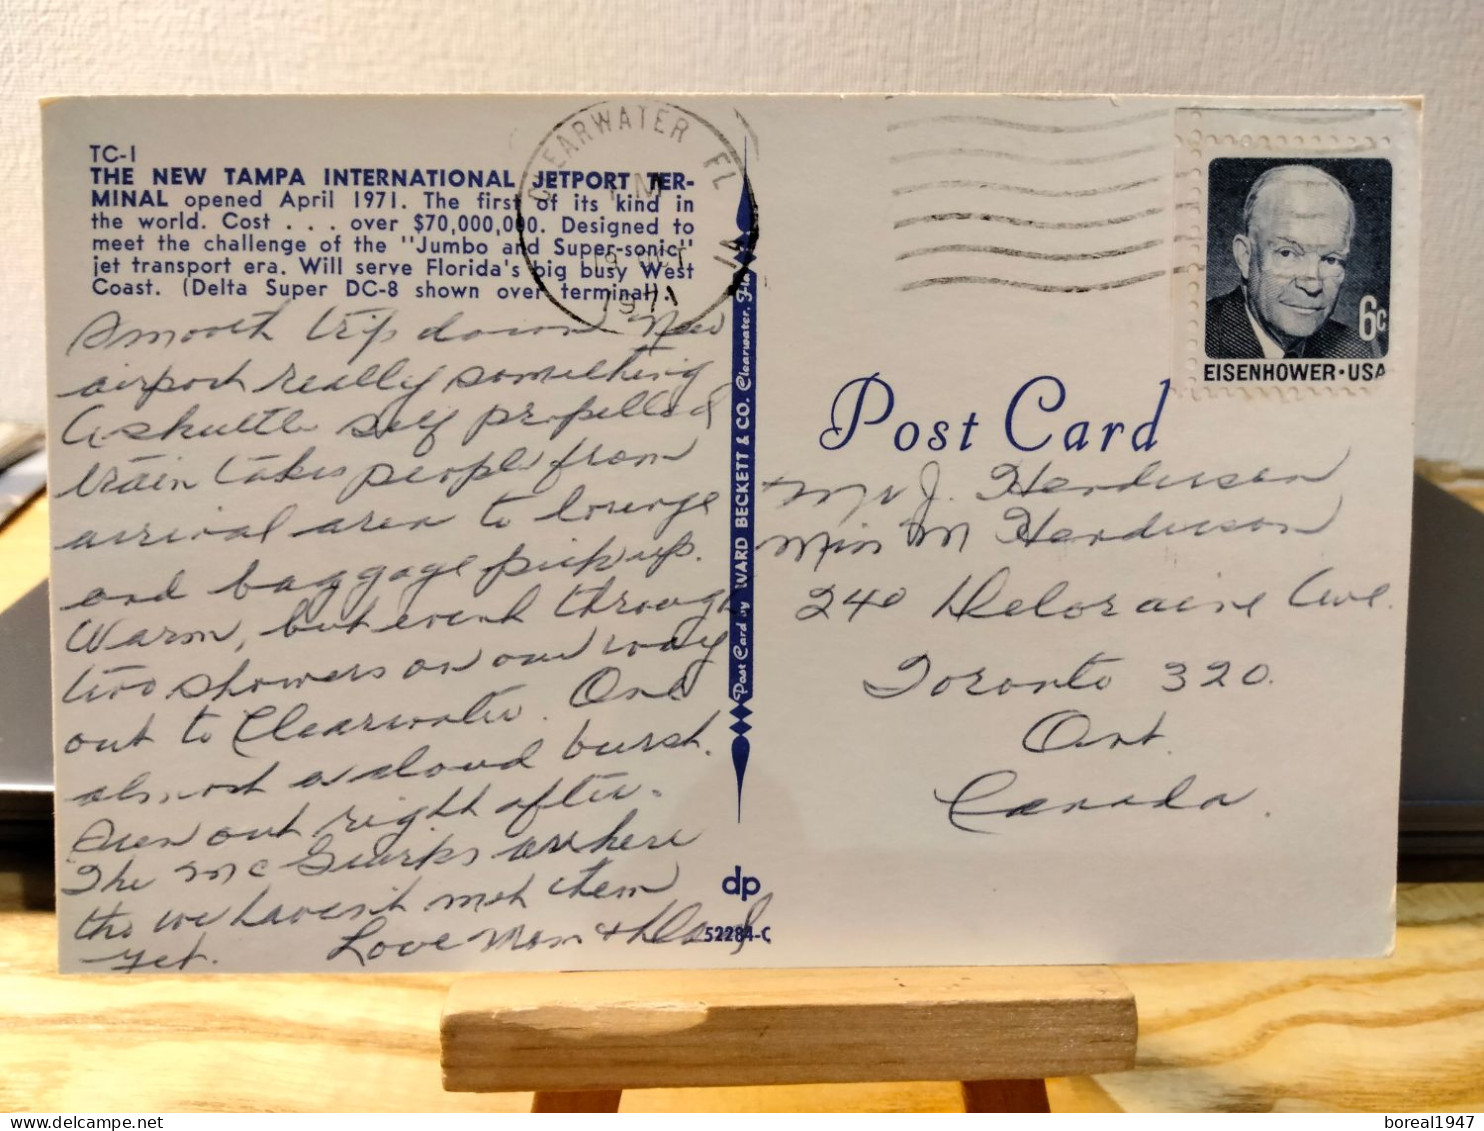 TC-1
THE NEW TAMPA INTERNATIONAL JETPORT TER-
MINAL opened April 1971. The first of its kind in
the world. Cost . . . over $70,000,000. Designed to
meet the challenge of the "Jumbo and Super-sonic"
jet transport era. Will serve Florida's big busy West
Coast. (Delta Super DC-8 shown over terminal).
Smooth trip down New
airport really something
A shuttle self propelled
train takes people from
arrival area to lounge
and baggage pick up.
Warm, but went through
two showers on our way
out to Clearwater. One
almost a cloud burst.
Sun out right after.
The Mc are here
tho we haven't met them
yet. Love Mom & Dad
CLEARWATER FL
PM
1971
Post Card by WARD BECKETT & CO. Clearwater, Fla.
dp
52284-C
6c
EISENHOWER·USA
Post Card
Mr J. Henderson
Miss M Henderson
240 Deloraine Ave.
Toronto 320.
Ont.
Canada.
boreal1947